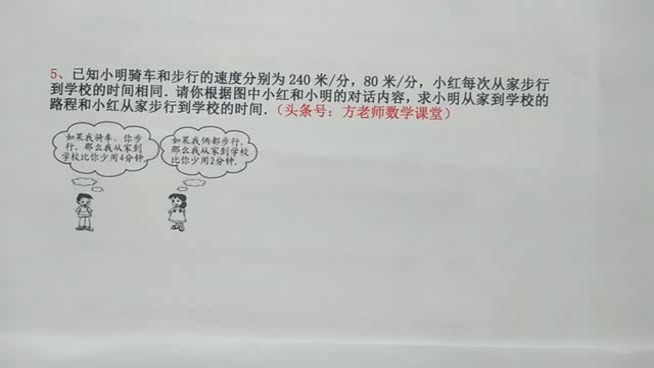 5、已知小明骑车和步行的速度分别为 240 米/分，80 米/分，小红每次从家步行
到学校的时间相同．请你根据图中小红和小明的对话内容，求小明从家到学校的
路程和小红从家步行到学校的时间．（头条号：方老师数学课堂）
如果我骑车，你步
行，那么我从家到
学校比你少用4分钟.
如果我俩都步行，
那么我从家到学校
比你少用2分钟.